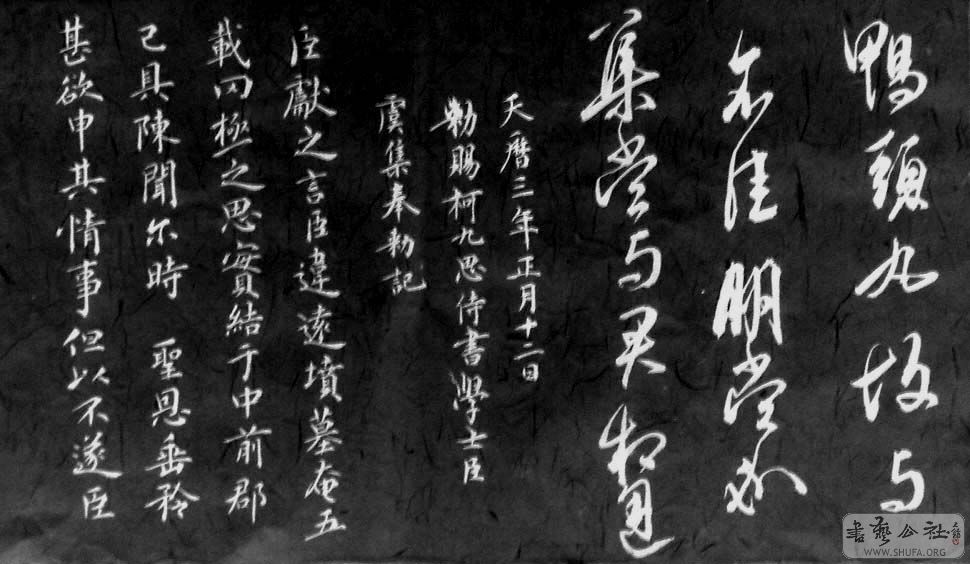 鴨頭丸故与
不佳 明當必
集當与君相
天曆三年正月十二日
勅賜柯九思侍書學士臣
虞集奉勅記
臣獻之言臣違遠墳墓奄五
載罔極之思實結于中前郡
已具陳聞尔時 聖恩垂矜
甚欲申其情事但以不遂臣
書藝公社
WWW.SHUFA.ORG